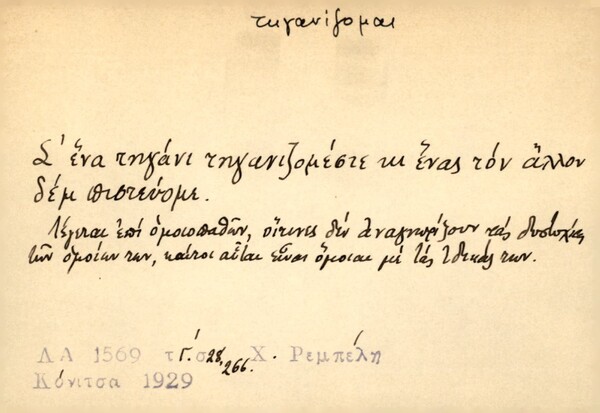 τηγανίζομαι
Σ' ἕνα τηγάνι τηγανιζομέστε κι ἕνας τόν ἄλλον
δέμ πιστεύομε.
Λέγεται ἐπί ὁμοιοπαθῶν, οἵτινες δέν ἀναγνωρίζουν τάς δυστυχίας
τῶν ὁμοίων των, καίτοι αὗται εἶναι ὅμοιαι μέ τάς ἰδικάς των.
ΛΑ 1569 Γ. 28, 266. Χ. Ρεμπέλη
Κόνιτσα 1929